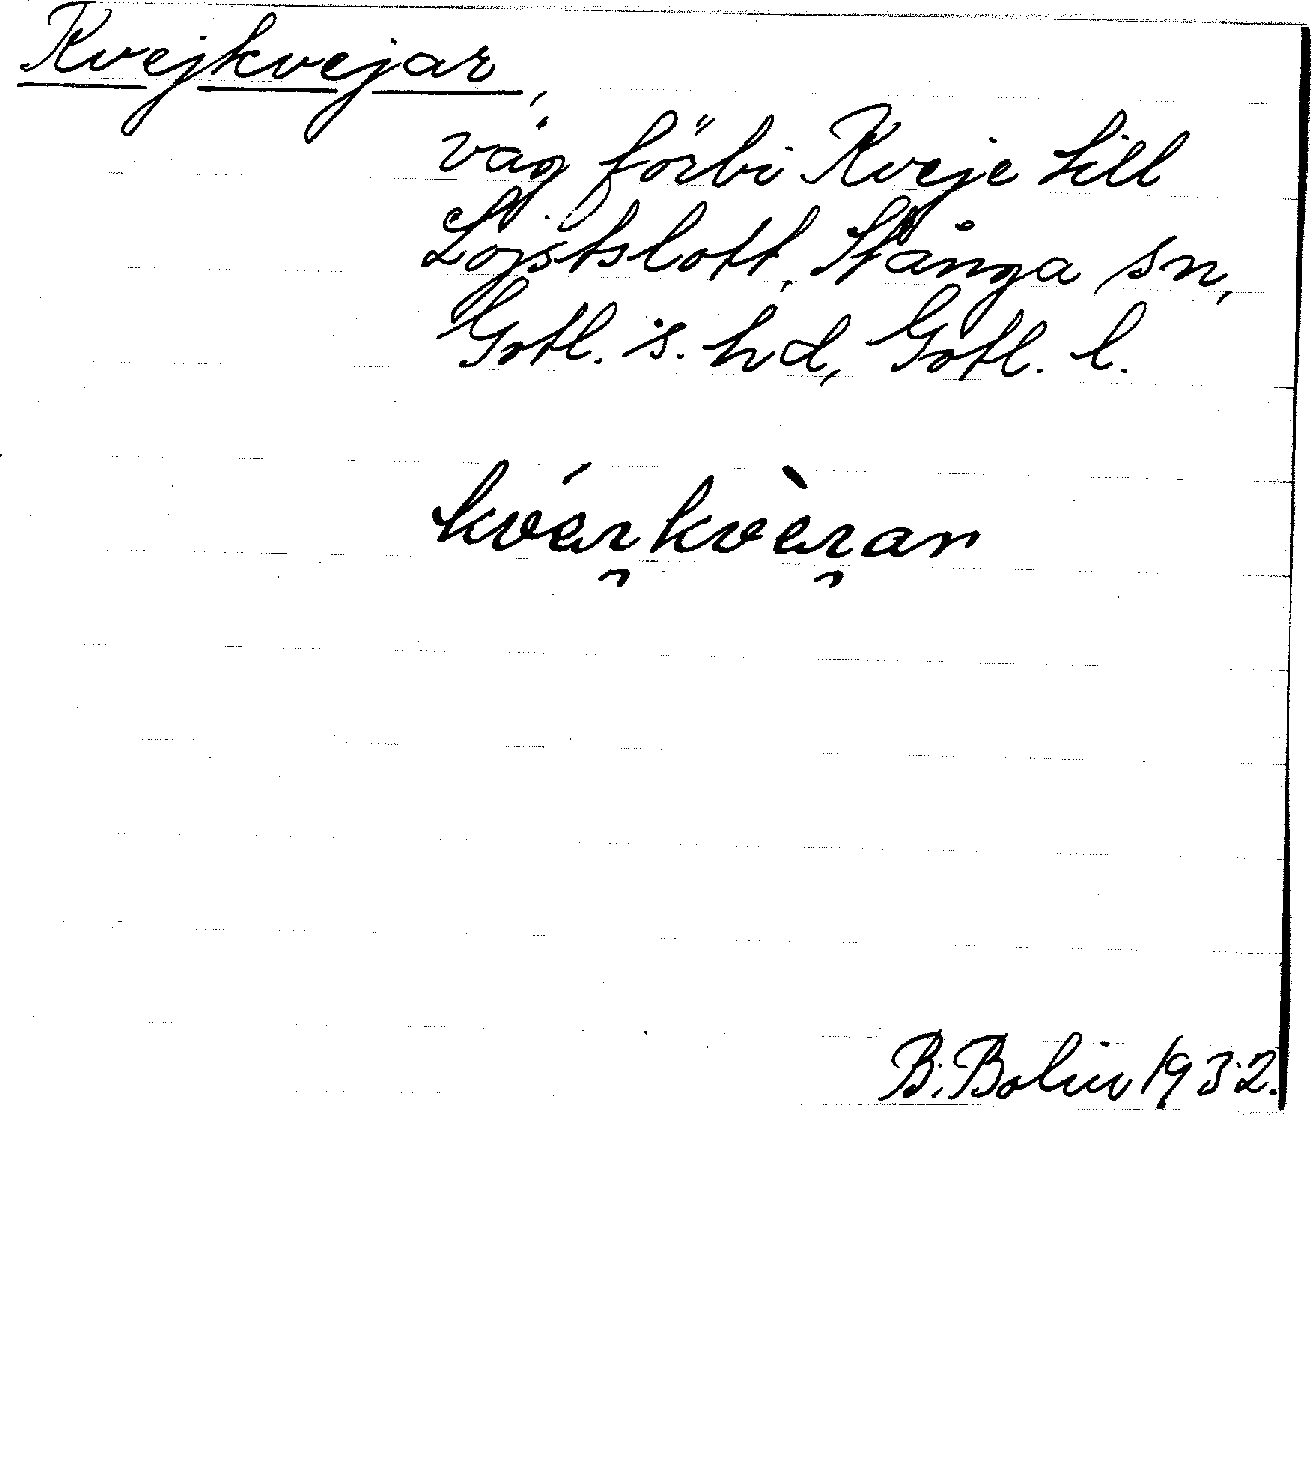 Kvejkvejar,
väg förbi Kveje till
Lojstslott, Stånga sn,
Gotl. s. hd, Gotl. l.
B. Bolin 1932.